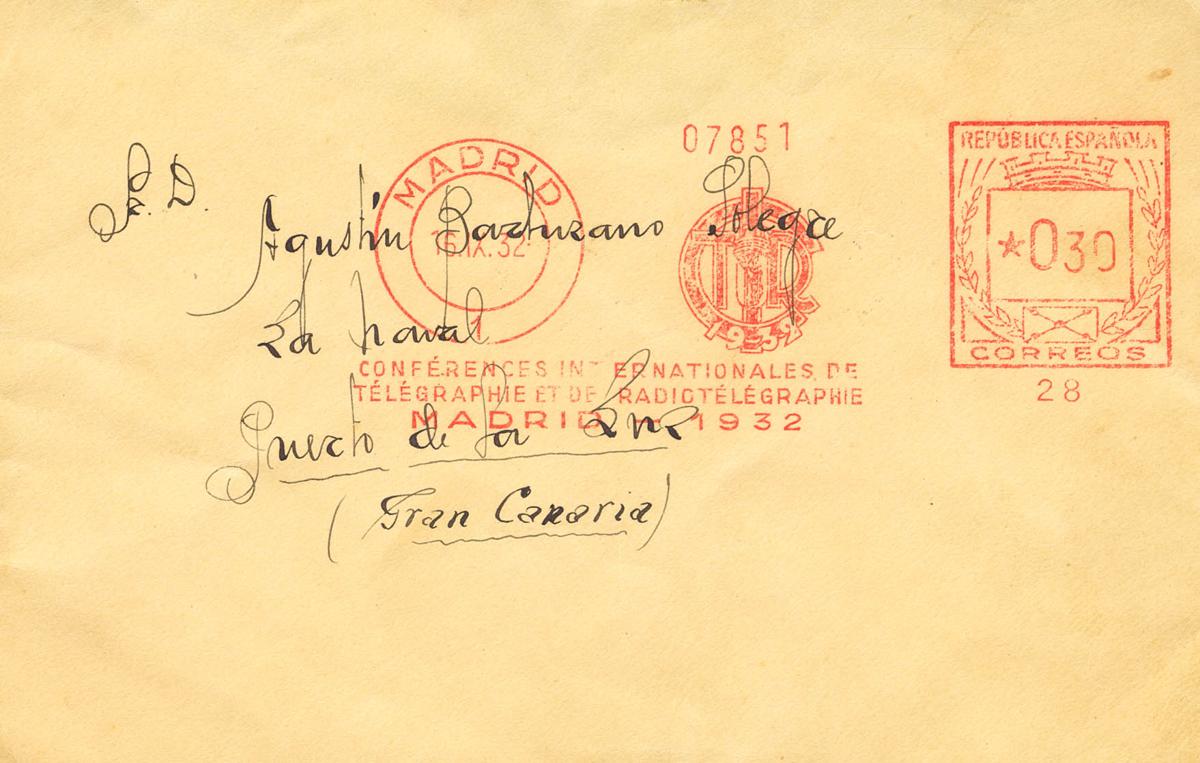 07851
REPÚBLICA ESPAÑOLA
*030
CORREOS
28
MADRID
.IX.32
1
1932
CONFÉRENCES INTERNATIONALES DE
TÉLÉGRAPHIE ET DE RADIOTÉLÉGRAPHIE
MADRID - 1932
Sr. D.
Agustín
La Naval
Puerto de la Luz
(Gran Canaria)